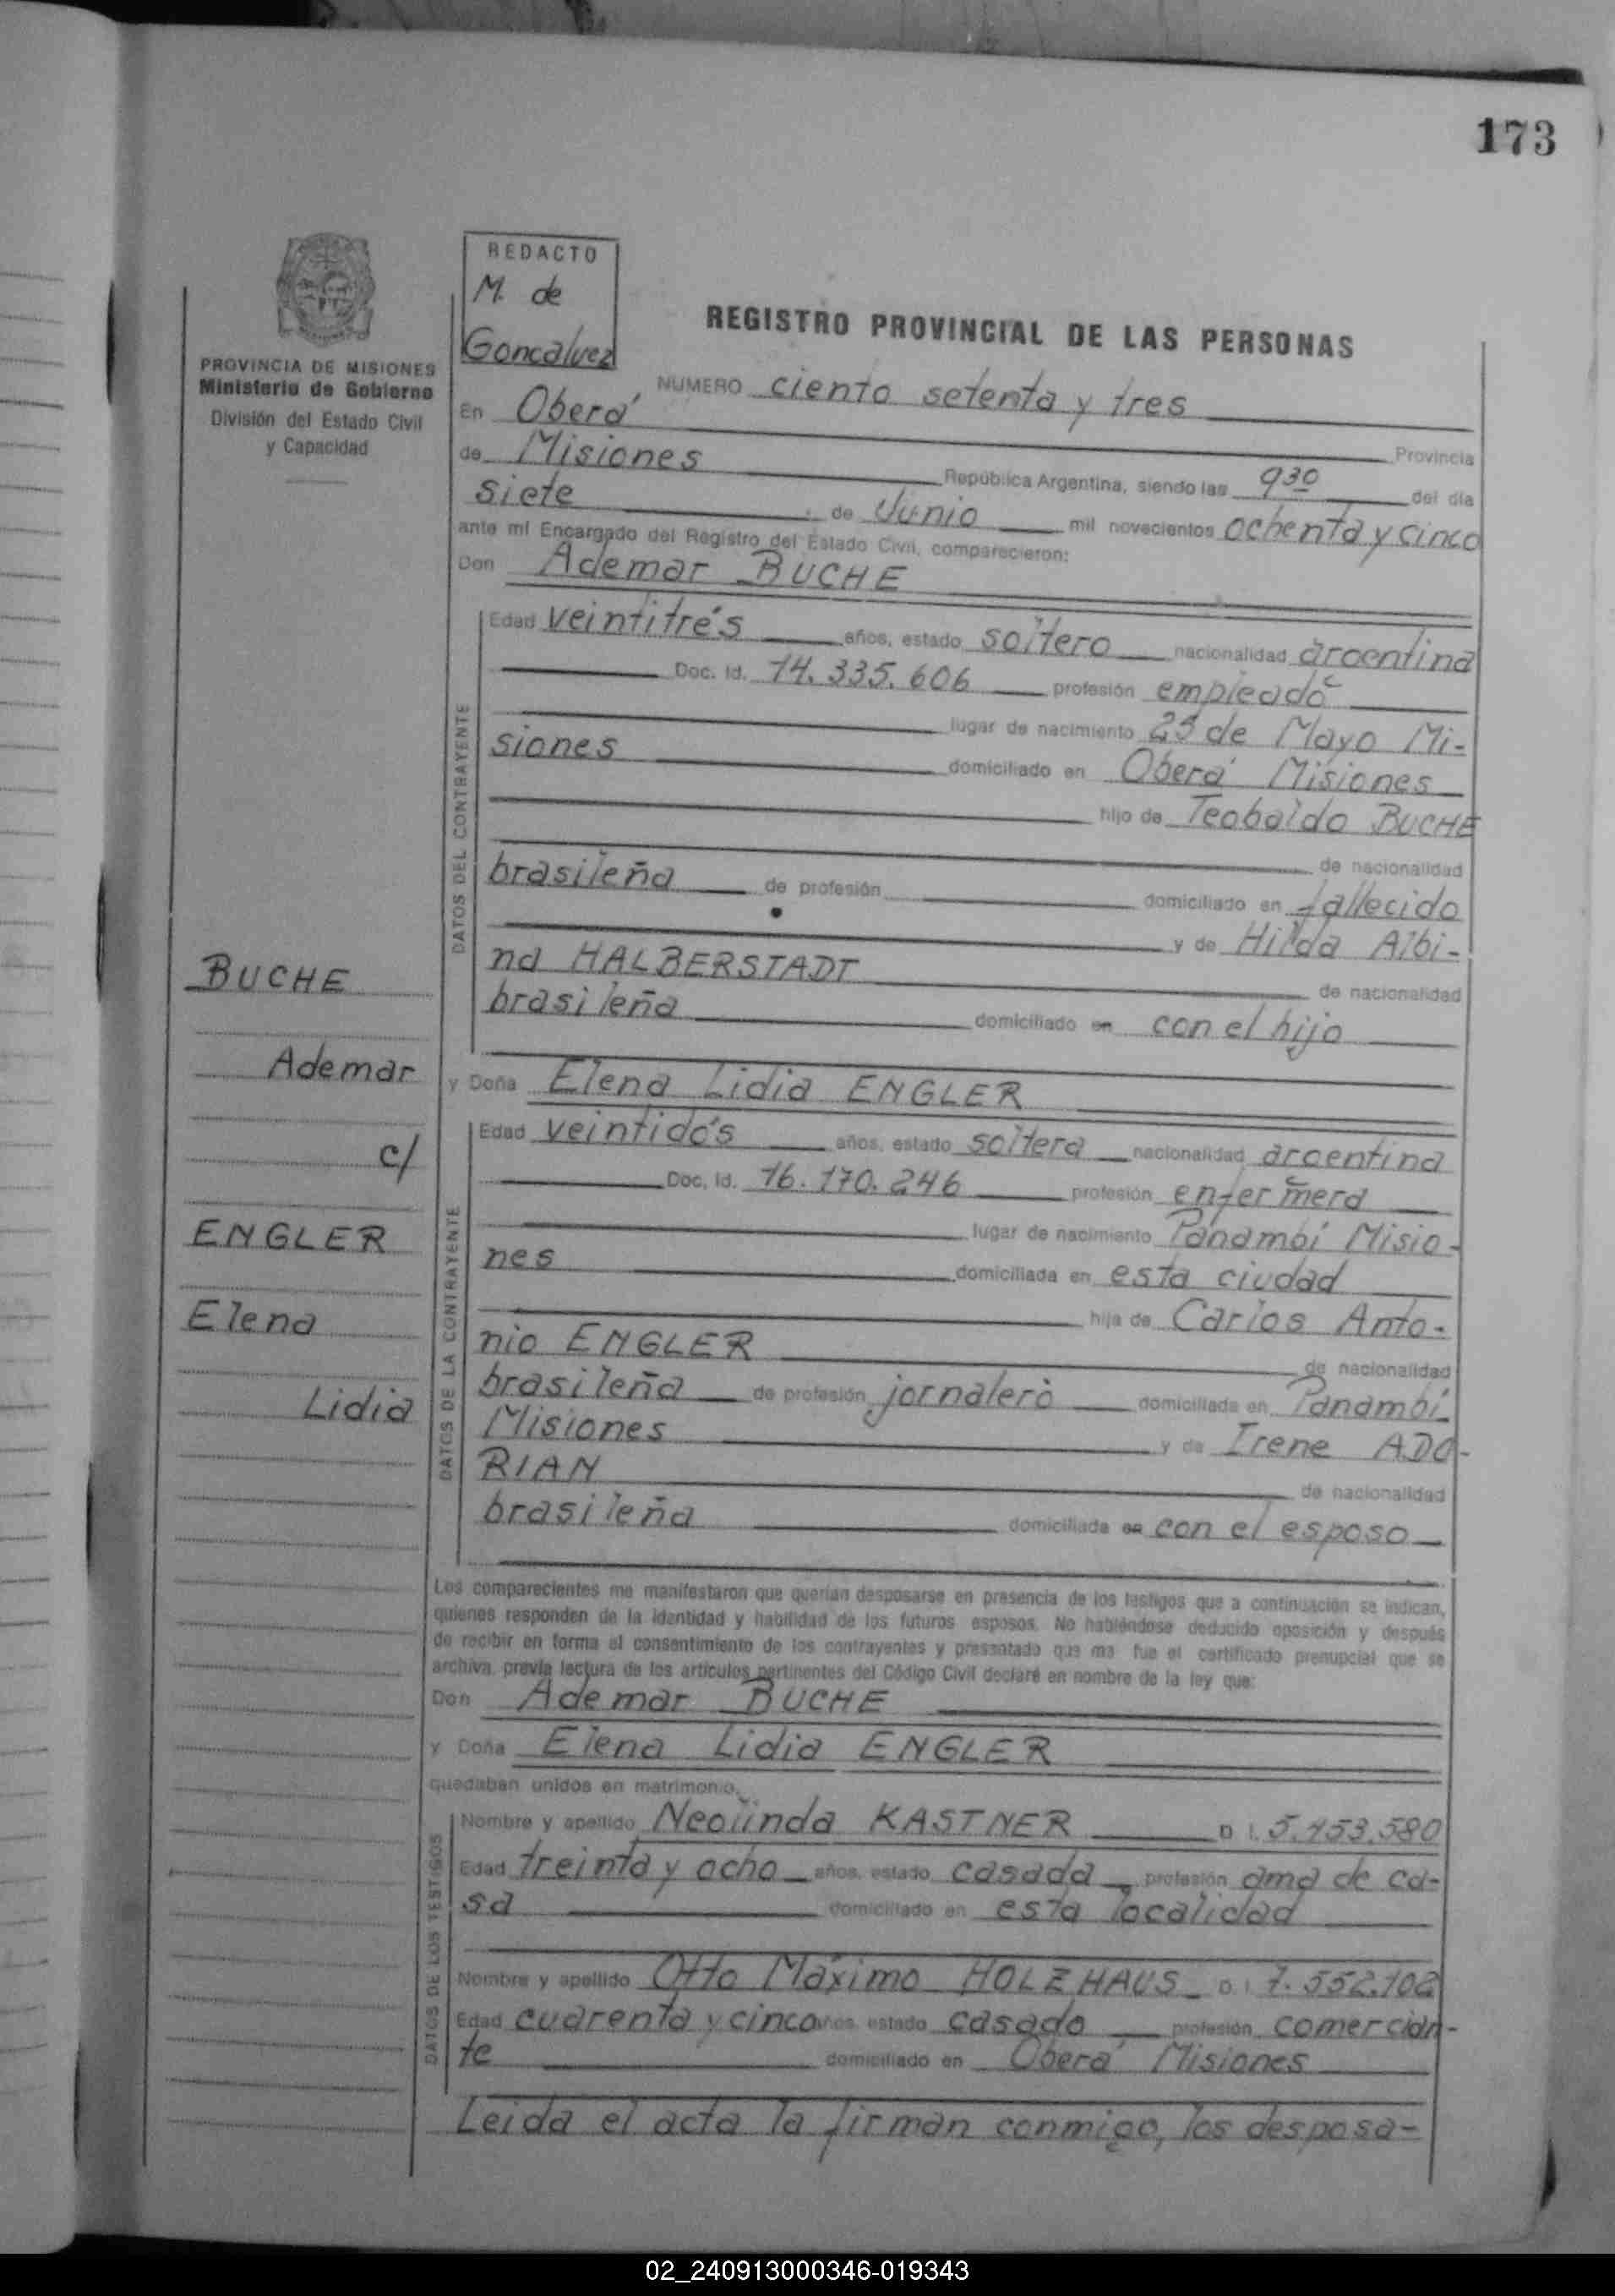 173
REDACTO
M. de
Goncalvez
PROVINCIA DE MISIONES
Ministerio de Gobierno
División del Estado Civil
y Capacidad
REGISTRO PROVINCIAL DE LAS PERSONAS
NUMERO ciento setenta y tres
En Oberá Provincia
de Misiones República Argentina, siendo las 930 del día
siete de Junio mil novecientos ochenta y cinco
ante mí Encargado del Registro del Estado Civil, comparecieron:
Don Ademar BUCHE
DATOS DEL CONTRAYENTE
Edad veintitrés años, estado soltero nacionalidad argentina
Doc. Id. 14.335.606 profesión empleado
lugar de nacimiento 25 de Mayo Mi-
siones domiciliado en Oberá Misiones
hijo de Teobaldo BUCHE
de nacionalidad
brasileña de profesión domiciliado en fallecido
y de Hilda Albi-
na HALBERSTADT de nacionalidad
brasileña domiciliado en con el hijo
y Doña Elena Lidia ENGLER
DATOS DE LA CONTRAYENTE
Edad veintidós años, estado soltera nacionalidad argentina
Doc, Id. 16.170.246 profesión enfermera
lugar de nacimiento Panambí Misio-
nes domiciliada en esta ciudad
hija de Carlos Anto-
nio ENGLER de nacionalidad
brasileña de profesión jornalero domiciliada en Panambí
Misiones y de Irene ADO-
RIAN de nacionalidad
brasileña domiciliada en con el esposo
BUCHE
Ademar
c/
ENGLER
Elena
Lidia
Los comparecientes me manifestaron que querían desposarse en presencia de los testigos que a continuación se indican,
quienes responden de la identidad y habilidad de los futuros esposos. No habiéndose deducido oposición y después
de recibir en forma el consentimiento de los contrayentes y presentado que me fue el certificado prenupcial que se
archiva, previa lectura de los artículos pertinentes del Código Civil declaré en nombre de la ley que:
Don Ademar BUCHE
y Doña Elena Lidia ENGLER
quedaban unidos en matrimonio.
DATOS DE LOS TESTIGOS
Nombre y apellido Neolinda KASTNER D I. 5.453.580
Edad treinta y ocho años, estado casada profesión ama de ca-
sa domiciliado en esta localidad
Nombre y apellido Otto Máximo HOLZHAUS D. I. 7.552.102
Edad cuarenta y cinco años, estado casado profesión comercian-
te domiciliado en Oberá Misiones
Leida el acta la firman conmigo, los desposa-
02_240913000346-019343